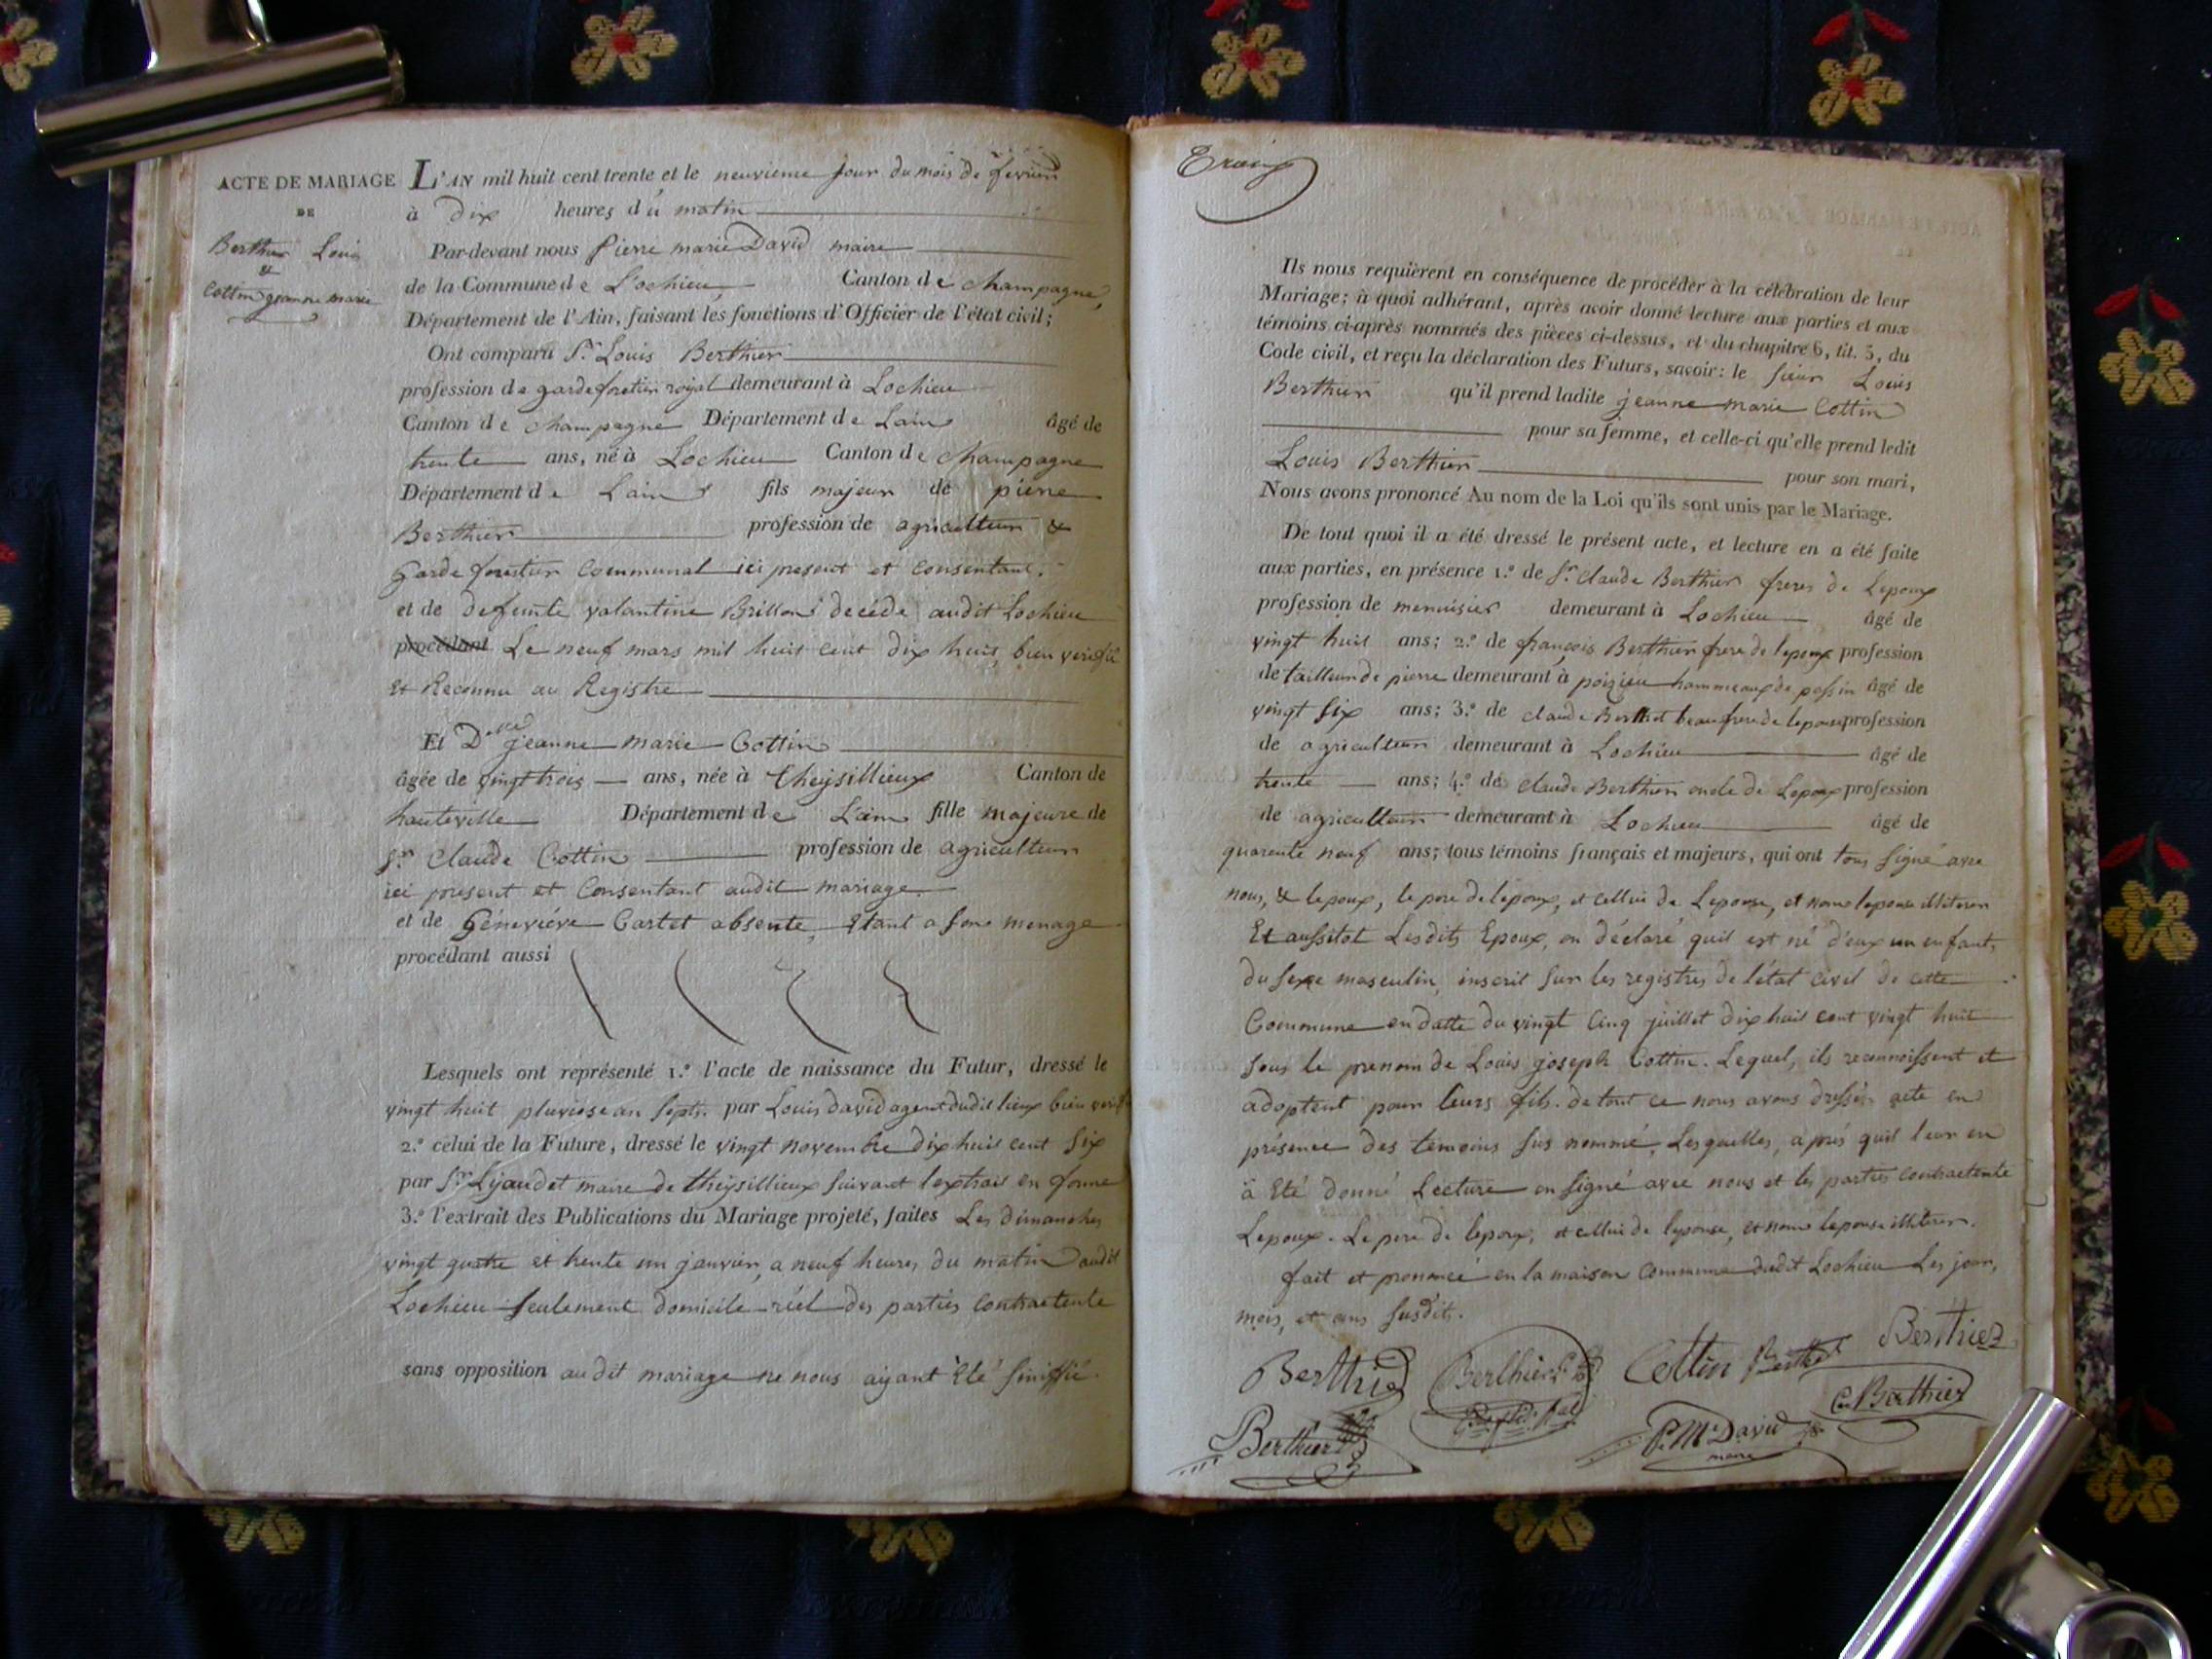 ACTE DE MARIAGE
DE
Berthier Louis
&
Cottin jeanne marie
L'AN mil huit cent trente et le neuvieme jour du mois de fevrier
à dix heures du matin
Par-devant nous Pierre marie David maire
de la Commune de Lochieu Canton de champagne,
Département de l'Ain, faisant les fonctions d'Officier de l'état civil;
Ont comparu Sr. Louis Berthier
profession de garde forestier royal demeurant à Lochieu
Canton de champagne Département de Lain âgé de
trente ans, né à Lochieu Canton de champagne
Département de Lain fils majeur de pierre
Berthier profession de agriculteur &
garde forestier communal ici present et consentant.
et de defunte valantine Brillon decédé audit Lochieu
procédant Le neuf mars mil huit cent dix huit, bien verifié
Et Reconnu au Registre
Et Dlle jeanne marie Cottin
âgée de vingt trois ans, née à theysillieux Canton de
hauteville Département de L'ain fille majeure de
Sr. Claude Cottin profession de agriculteur
ici present et Consentant audit mariage
et de Généviéve Cartet absente, Etant a son menage
procédant aussi
Lesquels ont représenté 1.º l'acte de naissance du Futur, dressé le
vingt huit pluviose an sept. par Louis david agent dudit lieux bien verif
2.º celui de la Future, dressé le vingt novembre dix huit cent six
par Sr. Lyaudet maire de theysillieux suivant lextrait en forme
3.º l'extrait des Publications du Mariage projeté, faites Les dimanches
vingt quatre et trente un janvier, a neuf heures du matin audit
Lochieu seulement domicile réel des parties contractente
sans opposition audit mariage ne nous aÿant Eté siniffié.
Ils nous requièrent en conséquence de procéder à la célébration de leur
Mariage; à quoi adhérant, après avoir donné lecture aux parties et aux
témoins ci-après nommés des pièces ci-dessus, et du chapitre 6, tit. 5, du
Code civil, et reçu la déclaration des Futurs, savoir: le sieur Louis
Berthier qu'il prend ladite jeanne marie Cottin
pour sa femme, et celle-ci qu'elle prend ledit
Louis Berthier pour son mari,
Nous avons prononcé Au nom de la Loi qu'ils sont unis par le Mariage.
De tout quoi il a été dressé le présent acte, et lecture en a été faite
aux parties, en présence 1.º de Sr. claude Berthier freres de Lepoux
profession de menuisier demeurant à Lochieu âgé de
vingt huit ans; 2.º de françois Berthier frere de lepoux profession
de tailleur de pierre demeurant à poizieu hammeaux de passin âgé de
vingt six ans; 3.º de claude Berthet beaufrere de lepoux profession
de agriculteur demeurant à Lochieu âgé de
trente ans; 4.º de Claude Berthier oncle de Lepoux profession
de agriculteur demeurant à Lochieu âgé de
quarente neuf ans; tous témoins français et majeurs, qui ont tous signé avec
nous, & lepoux, le pere de lepoux, et cellui de Lepouse, et non lepouse illiteree
Et aussitot Lesdits Epoux, on déclaré quil est né d'eux un enfant,
du sexe masculin, inscrit sur les registres de l'état civil de cette
Commune en datte du vingt cinq juillet dix huit cent vingt huit
sous le prenom de Louis joseph Cottin. Lequel, ils reconnoissent et
adoptent pour leurs fils. de tout ce nous avons dressé acte en
présence des temoins sus nommé, Lesquelles, aprés quil leur en
à Eté donné Lecture on signé avec nous et les parties contractente
Lepoux. Le pere de lepoux, et cellui de lepouse, et non lepouse illiteree.
fait et prononcé en la maison commune dudit Lochieu Les jour,
mois, et ans susdit.
Berthier Berthier Cottin Berthet Berthier
Berthier P. M. David C. Berthier
maire